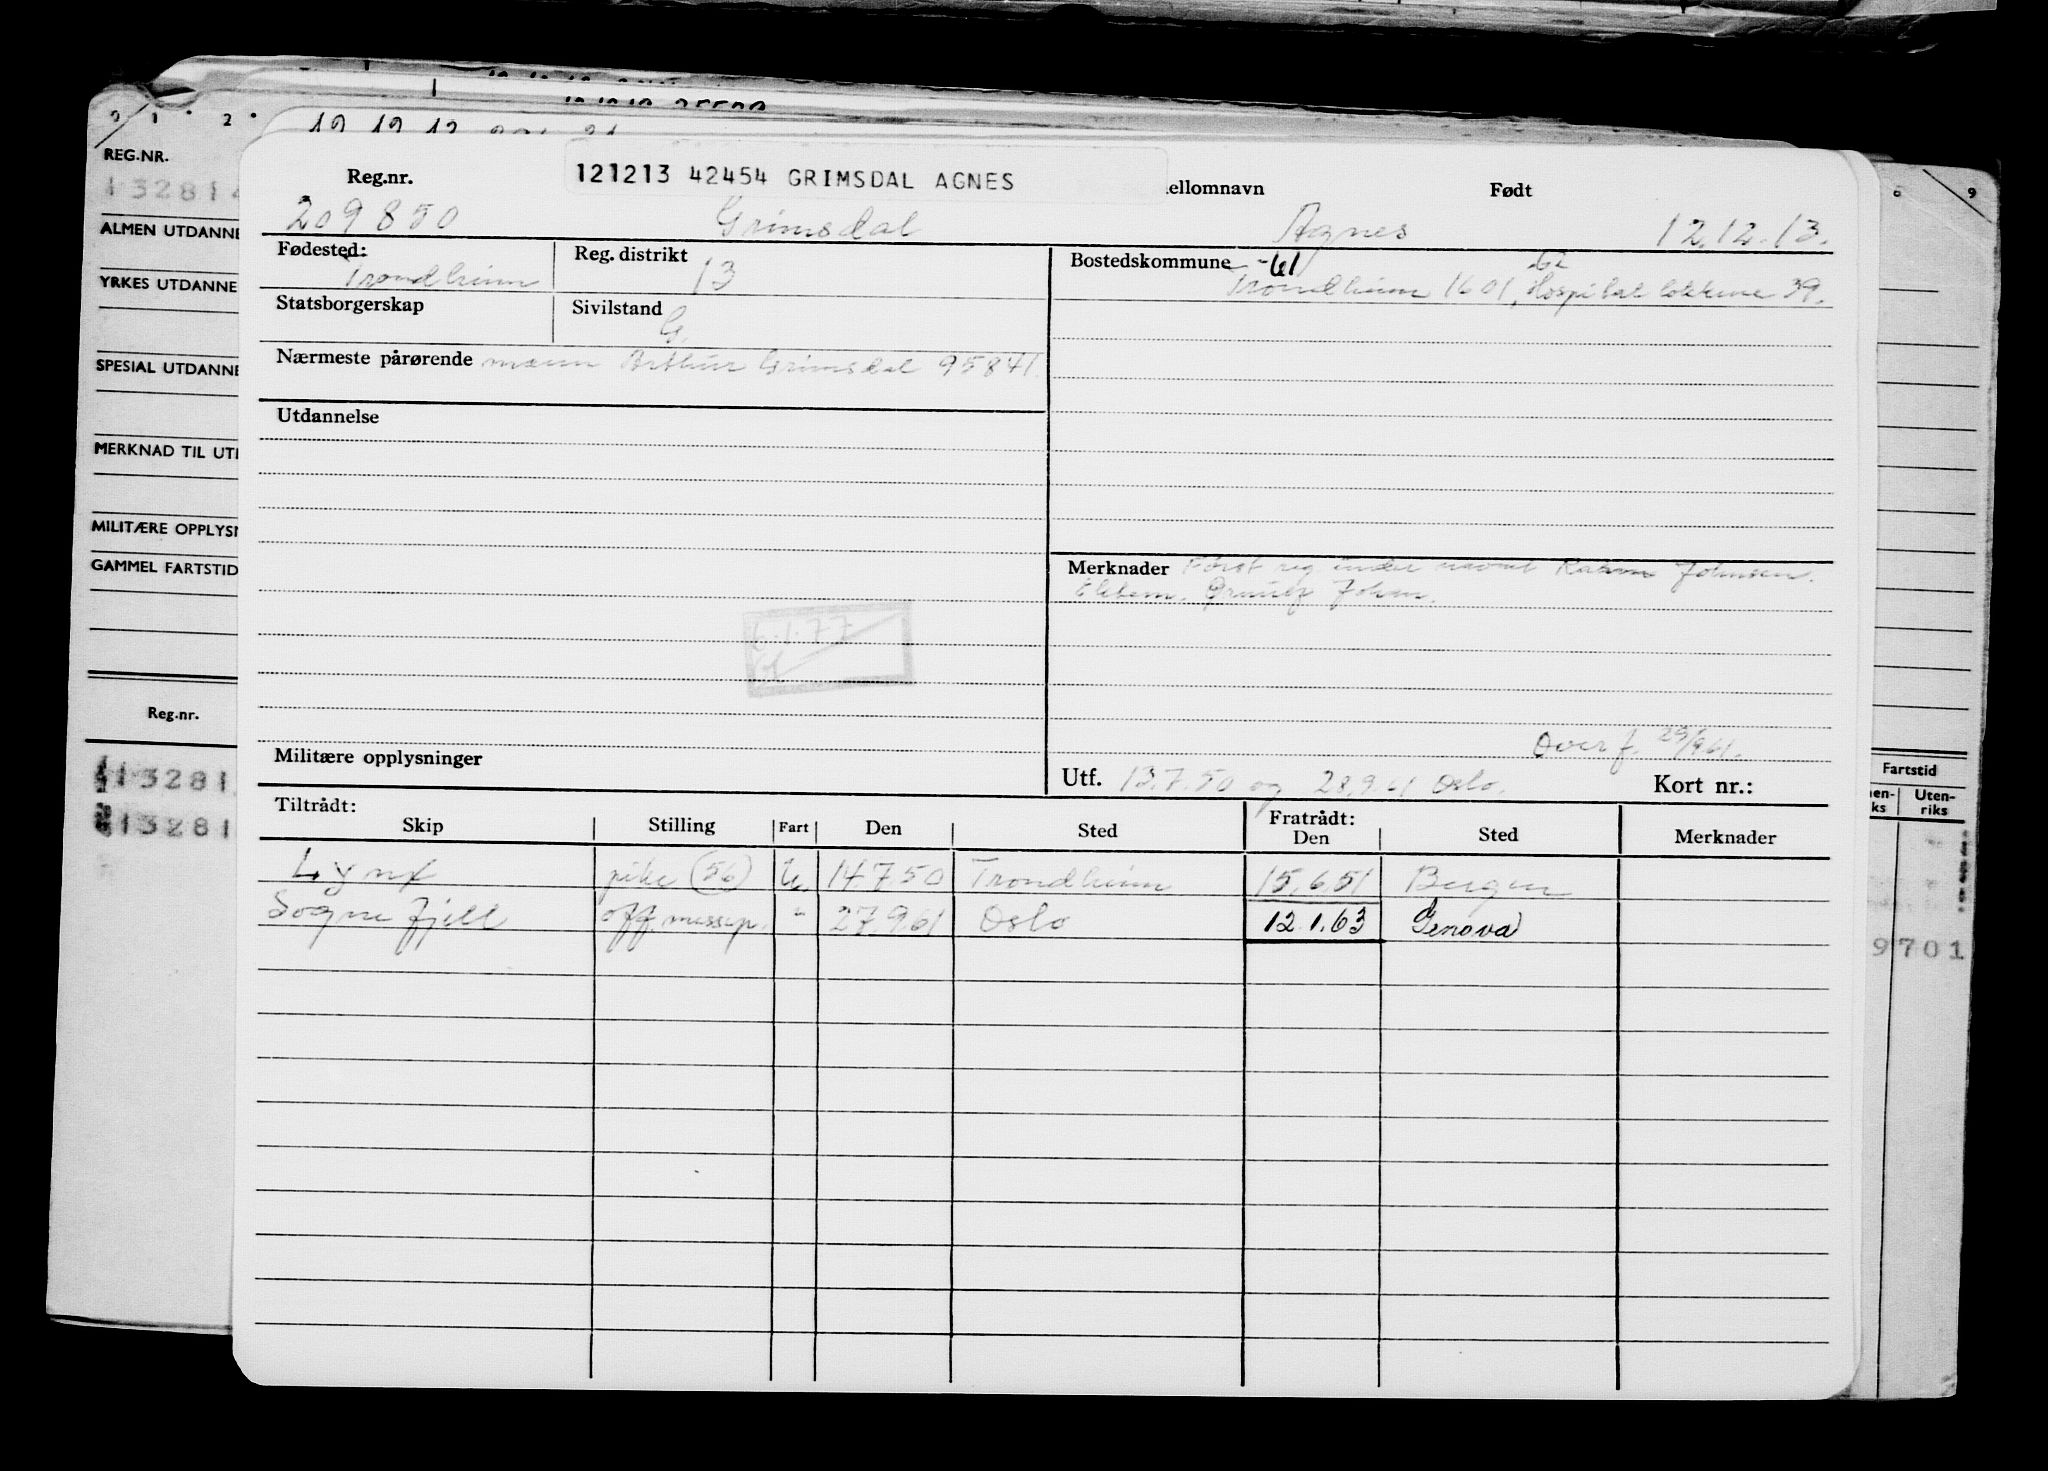 121213 42454 GRIMSDAL AGNES
Reg.nr. ellomnavn Født
209850 Grimsdal Agnes 12.12.13.
Fødested: Trondheim
Reg. distrikt 13
Bostedskommune -61 -62
Trondheim 1601, Hospitalsløkkene 39.
Statsborgerskap
Sivilstand G.
Nærmeste pårørende mann Arthur Grimsdal 95841.
Utdannelse
Merknader Først reg under navnet Johnsen.
Johan.
6.1.77
Overf. 29/9 61.
Militære opplysninger
Utf. 13.7.50 og 28.9.61 Oslo. Kort nr.:
Tiltrådt: Fratrådt:
Skip Stilling Fart Den Sted Den Sted Merknader
Lynx pike (56) U. 14.7.50 Trondheim 15.6.51 Bergen
Sognefjell off.messep. " 27.9.61 Oslo 12.1.63 Genova
2 1 2
REG.NR.
132814
ALMEN UTDANNE
YRKES UTDANNE
SPESIAL UTDANNE
MERKNAD TIL UTI
MILITÆRE OPPLYSN
GAMMEL FARTSTID
Reg.nr.
13281
13281
6 9
Fartstid
en-ks Uten-riks
9701